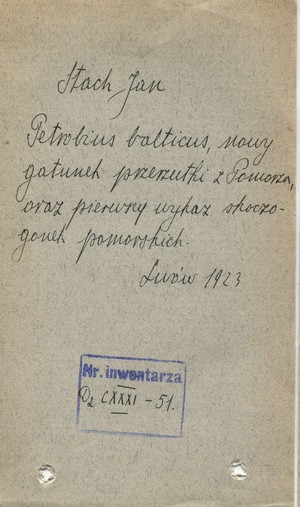 Stach Jan
Petrobius balticus, nowy
gatunek przerzutki z Pomorza,
oraz pierwszy wykaz skoczo-
gonek pomorskich.
Lwów 1923
Nr. inwentarza
Dz CXXXI - 51.